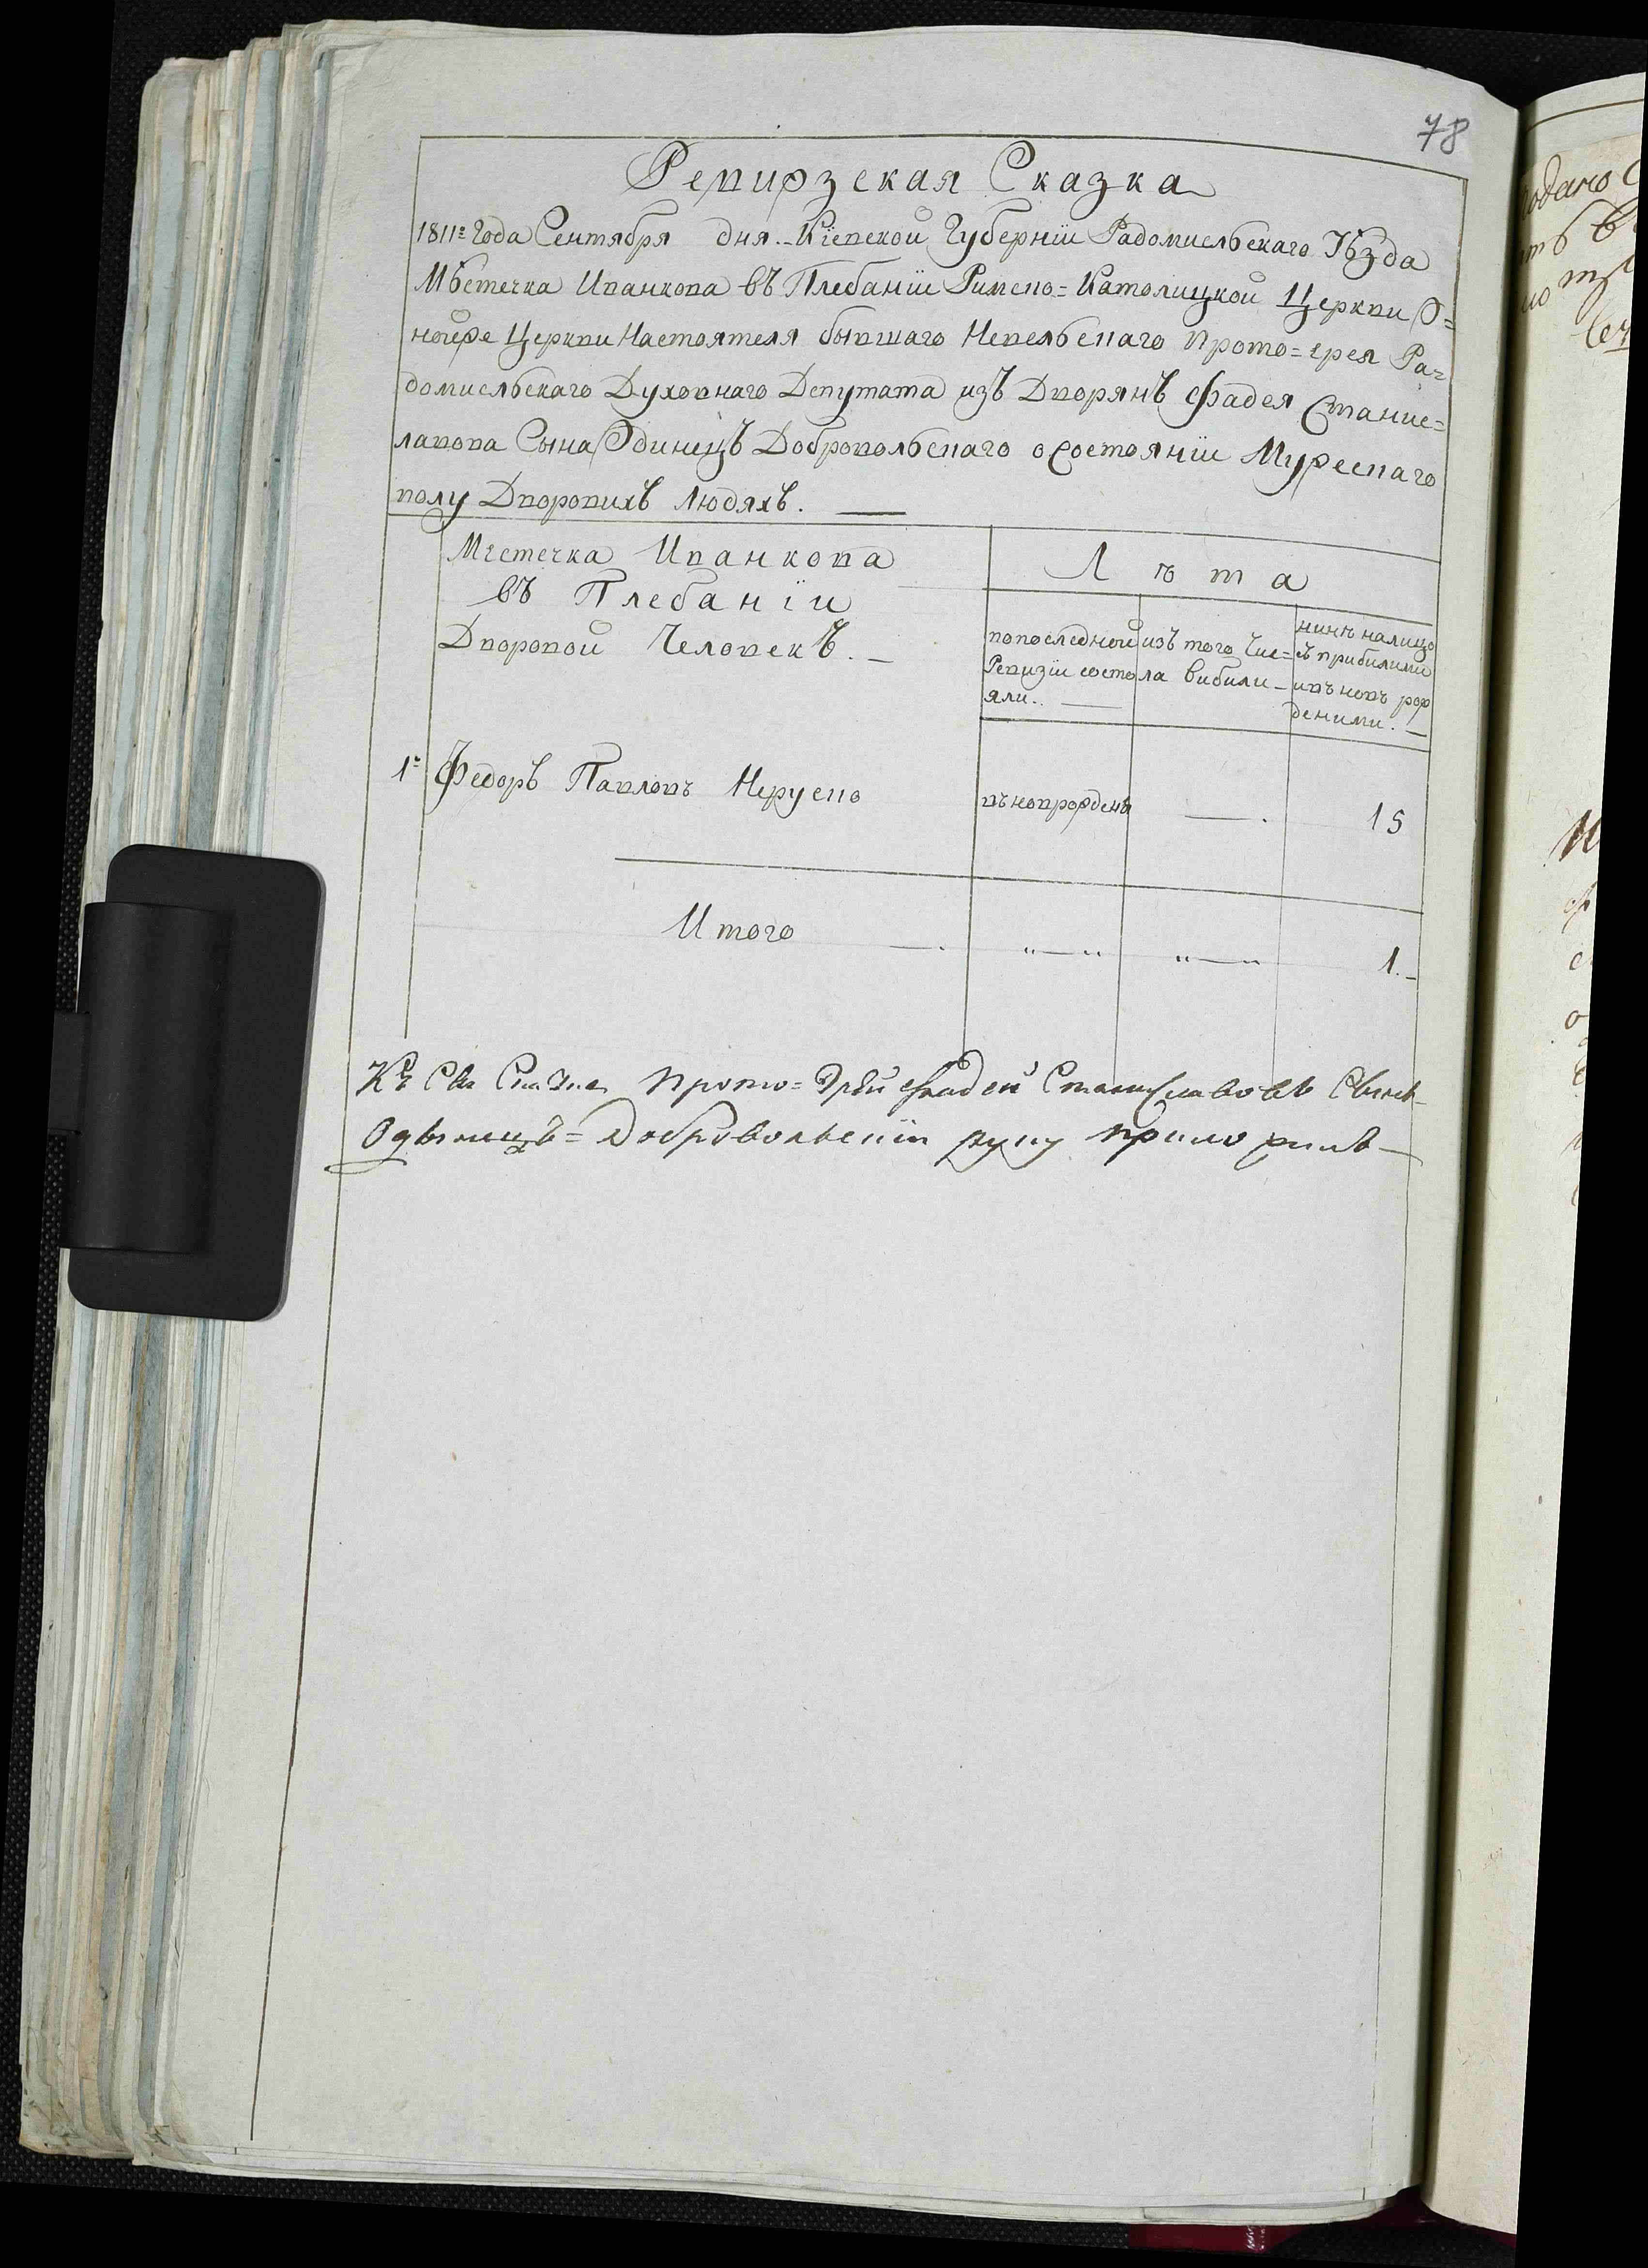 78
Ревижская Сказка
1811г Года Сентября дня. Кіевской Губерніи Радомисльскаго Уѣзда
Мѣстечка Иванкова въ Плебаніи Римско=Католицкой Церкви О=
нойже Церкви Настоятеля бывшаго Невельскаго Прото=ерея Ра=
домисльскаго Духовнаго Депутата изъ Дворянъ Фадея Станис=
лавова Сына Одинецъ Добровольскаго о Состояніи Мужескаго
полу Дворовихъ Людяхъ.
Местечка Иванкова
въ Плебаніи
Дворовой Человекъ.
Лѣта
попоследной Ревизіи состояли.
изъ того Числа вибили
нинѣ налицо съ прибилими ивъновъ рожденими.
1е Федоръ Павловъ Неруско
въноврожденъ — 15
Итого — „—„ „—„ 1.
Къ Сей Сказке Прото=Ерей Фадей Станиславовъ Сынъ
Одынецъ=Добровольскій руку приложилъ